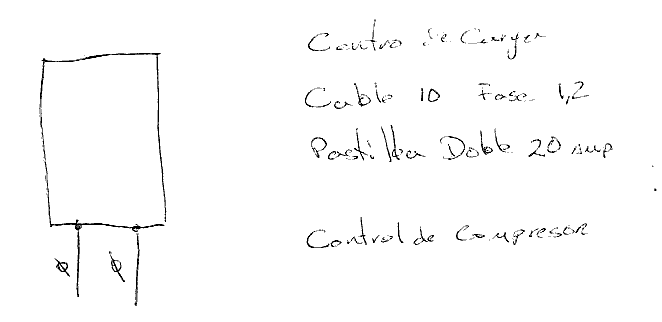 Centro de Carga
Cable 10 Fase 1,2
Pastilla Doble 20 Amp
Control de Compresor
ϕ ϕ